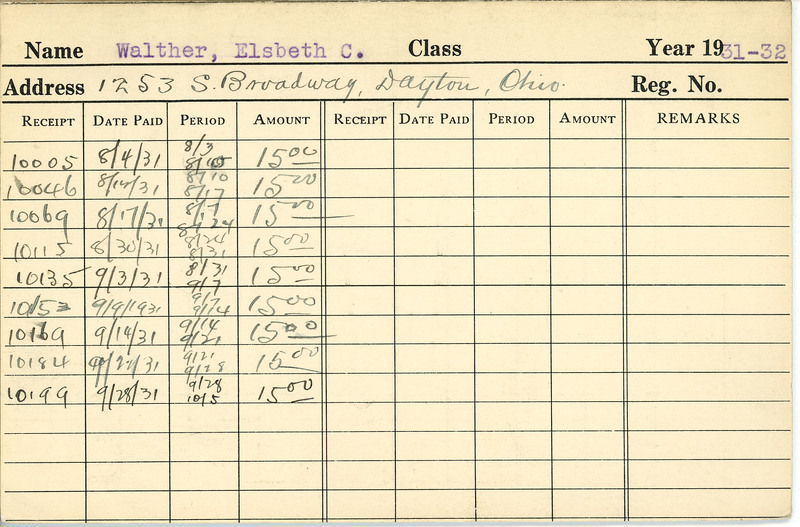 Name Walther, Elsbeth C. Class Year 1931-32
Address 1253 S. Broadway, Dayton, Ohio. Reg. No.
RECEIPT DATE PAID PERIOD AMOUNT RECEIPT DATE PAID PERIOD AMOUNT REMARKS
8/3
10005 8/4/31 8/10 15 00
8/10
10046 8/17 15 00
8/17
10069 8/17/31 8/24 15 00
8/24
10115 8/30/31 8/31 15 00
8/31
10135 9/3/31 9/7 15 00
9/7
10153 9/9/1931 9/14 15 00
9/14
10169 9/14/31 9/21 15 00
9/21
10184 9/28 15 00
9/28
10199 9/28/31 10/5 15 00